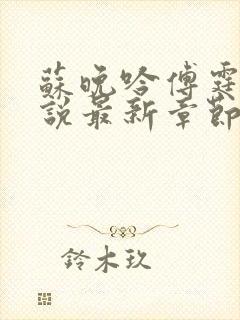 蘇晚吟傅霆
說最新章節
鈴木玖